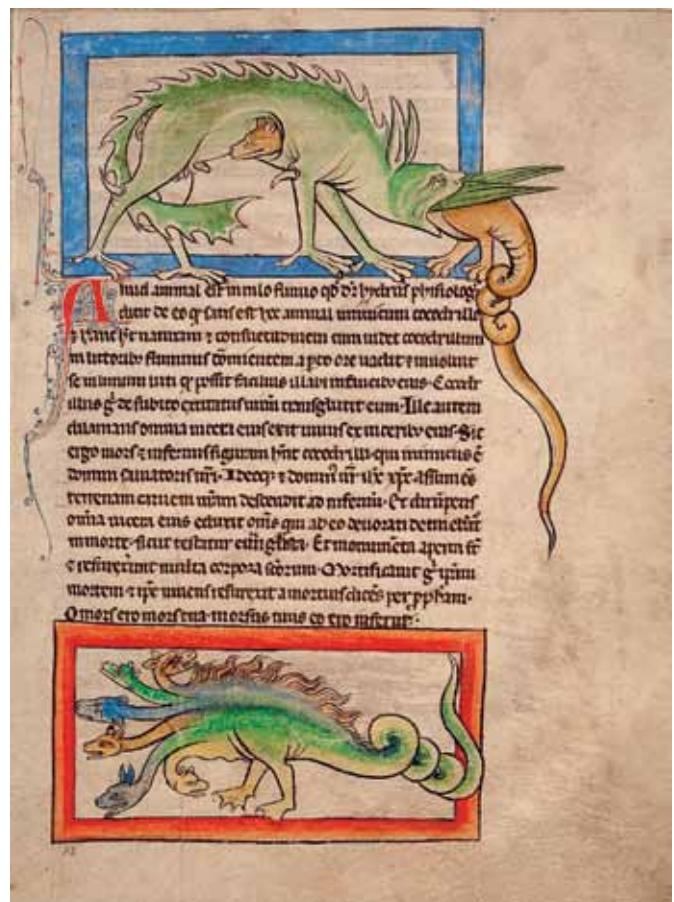 Aliud animal est in nilo fluuio qd̄ dr̄ hydrus phisiolog᷒
dicit de eo qꝫ satis est hoc animal inimicum cocodrillo
⁊ hanc hꝫ naturam ⁊ consuetudinem cum uidet cocodrillum
in littoribꝫ fluminis dormientem aperto ore uadit ⁊ inuoluit
se in limum luti q̊ possit facilius illabi in faucibꝫ eius. Cocodr
illus g̊ de subito excitatus uiuū transglutit eum. Ille autem
dilanians omnia uiscera eius exit uiuus ex uisceribꝫ eius. Sic
ergo mors ⁊ infernus figuram hn̄t cocodrilli. qui inimicus ē
domini saluatoris nr̄i. Ideoqꝫ ⁊ domin᷒ nr̄ ihc̄ xp̄c assumēs
terrenam carnem nr̄am descendit ad infernū. Et dirumpens
om̄ia uiscera eius eduxit om̄s qui ab eo deuorati
in morte. sicut testatur Et monumēta aperta st̄
⁊ resurrexerunt multa corpora sc̄orum. Mortificauit g̊ ip̄am
mortem ⁊ ip̄e uiuens resurrexit a mortuis dicēs per ꝓph̄am.
O mors ero mors tua. morsus tuus ero inferne.